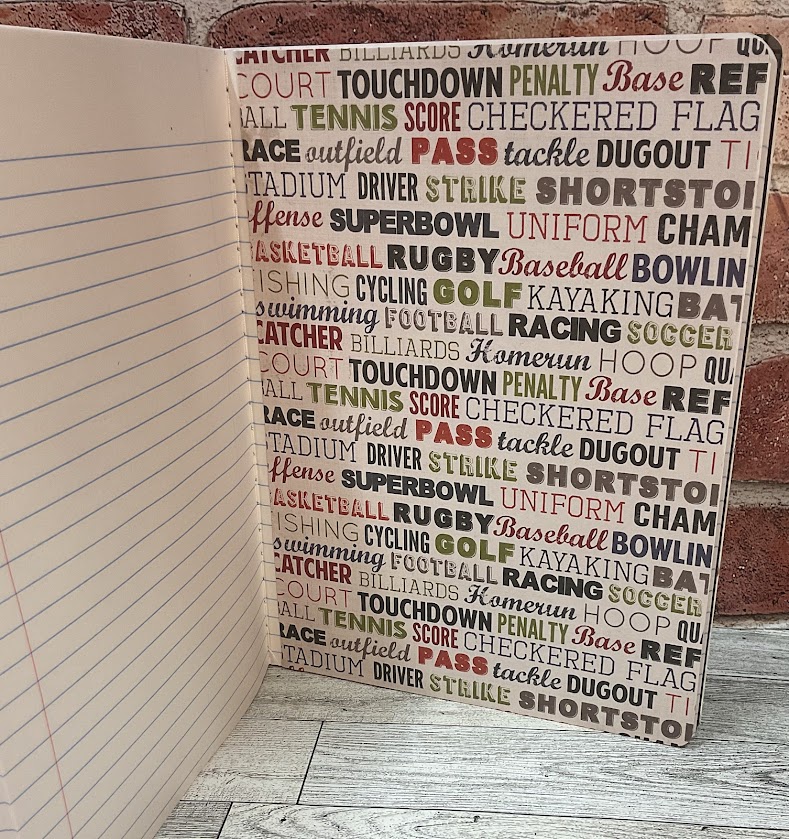 CATCHER BILLIARDS Homerun HOOP QU
COURT TOUCHDOWN PENALTY Base REF
ALL TENNIS SCORE CHECKERED FLAG
RACE outfield PASS tackle DUGOUT TI
TADIUM DRIVER STRIKE SHORTSTO
ffense SUPERBOWL UNIFORM CHAM
ASKETBALL RUGBY Baseball BOWLIN
ISHING CYCLING GOLF KAYAKING BAT
swimming FOOTBALL RACING SOCCER
CATCHER BILLIARDS Homerun HOOP QU
COURT TOUCHDOWN PENALTY Base REF
ALL TENNIS SCORE CHECKERED FLAG
RACE outfield PASS tackle DUGOUT TI
TADIUM DRIVER STRIKE SHORTSTO
ffense SUPERBOWL UNIFORM CHAM
ASKETBALL RUGBY Baseball BOWLIN
ISHING CYCLING GOLF KAYAKING BAT
swimming FOOTBALL RACING SOCCER
CATCHER BILLIARDS Homerun HOOP QU
COURT TOUCHDOWN PENALTY Base REF
ALL TENNIS SCORE CHECKERED FLAG
RACE outfield PASS tackle DUGOUT TI
TADIUM DRIVER STRIKE SHORTSTO